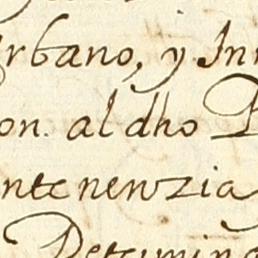 Urbano, y In
on. al dho
ntenenzia
Determina